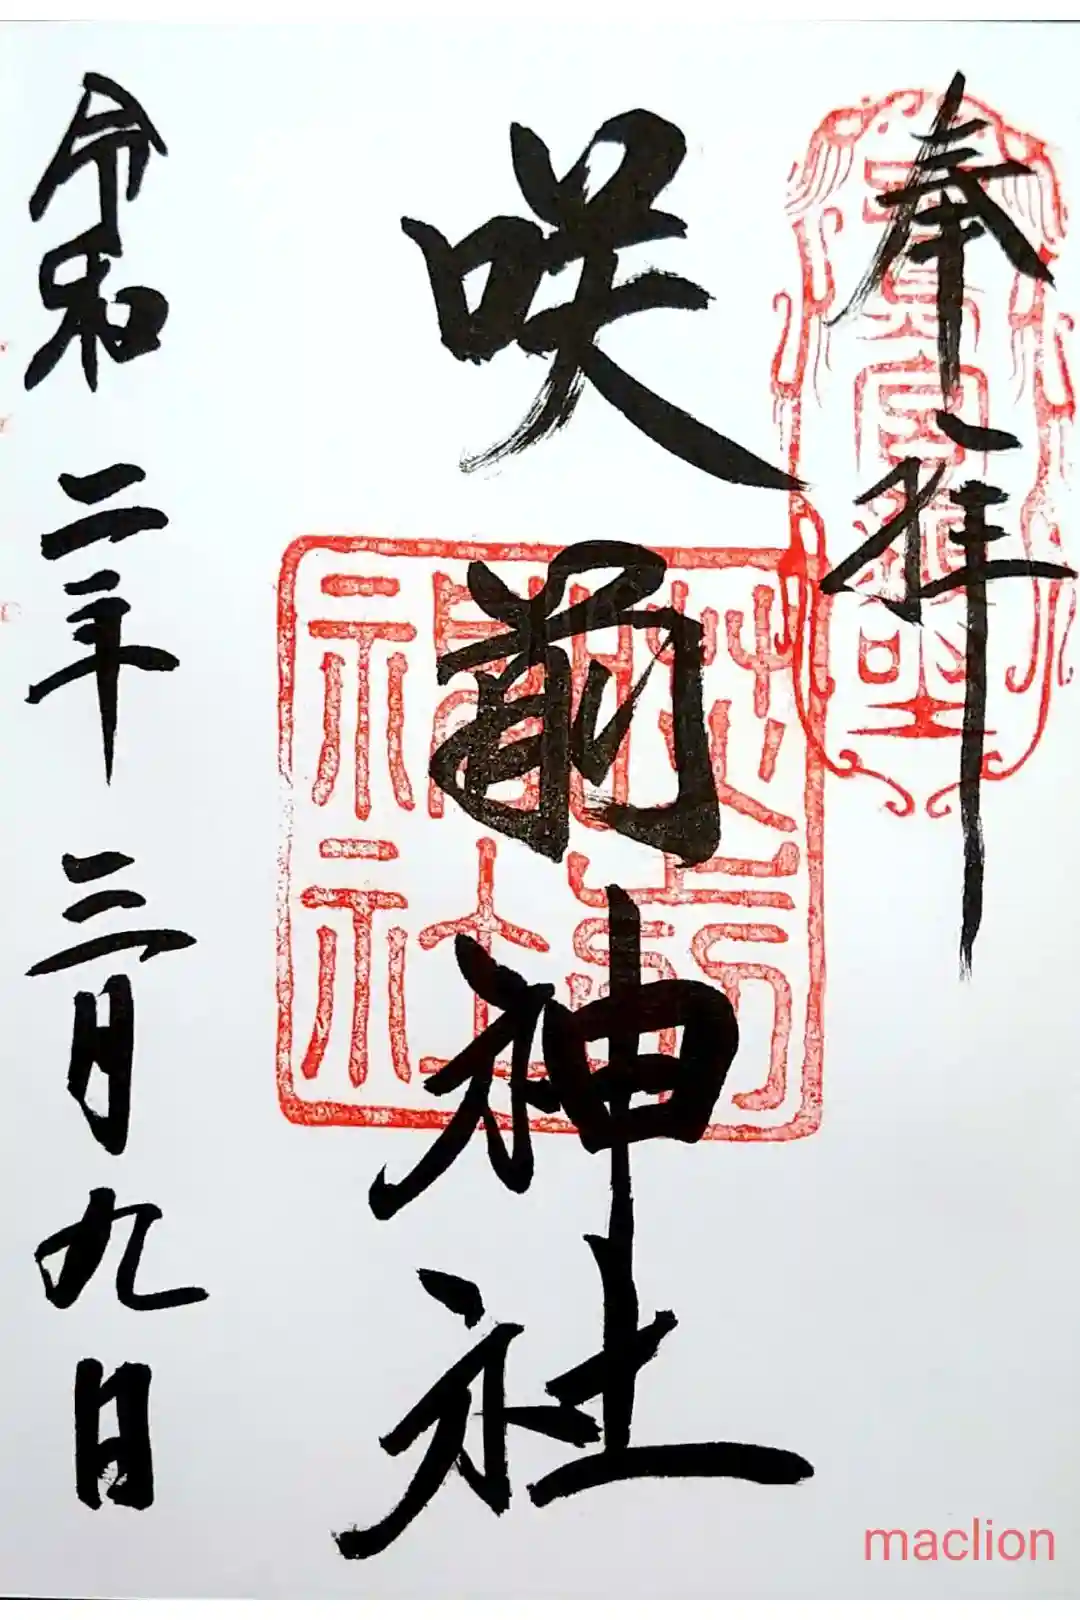 奉拝
咲前神社
令和二年三月九日
maclion